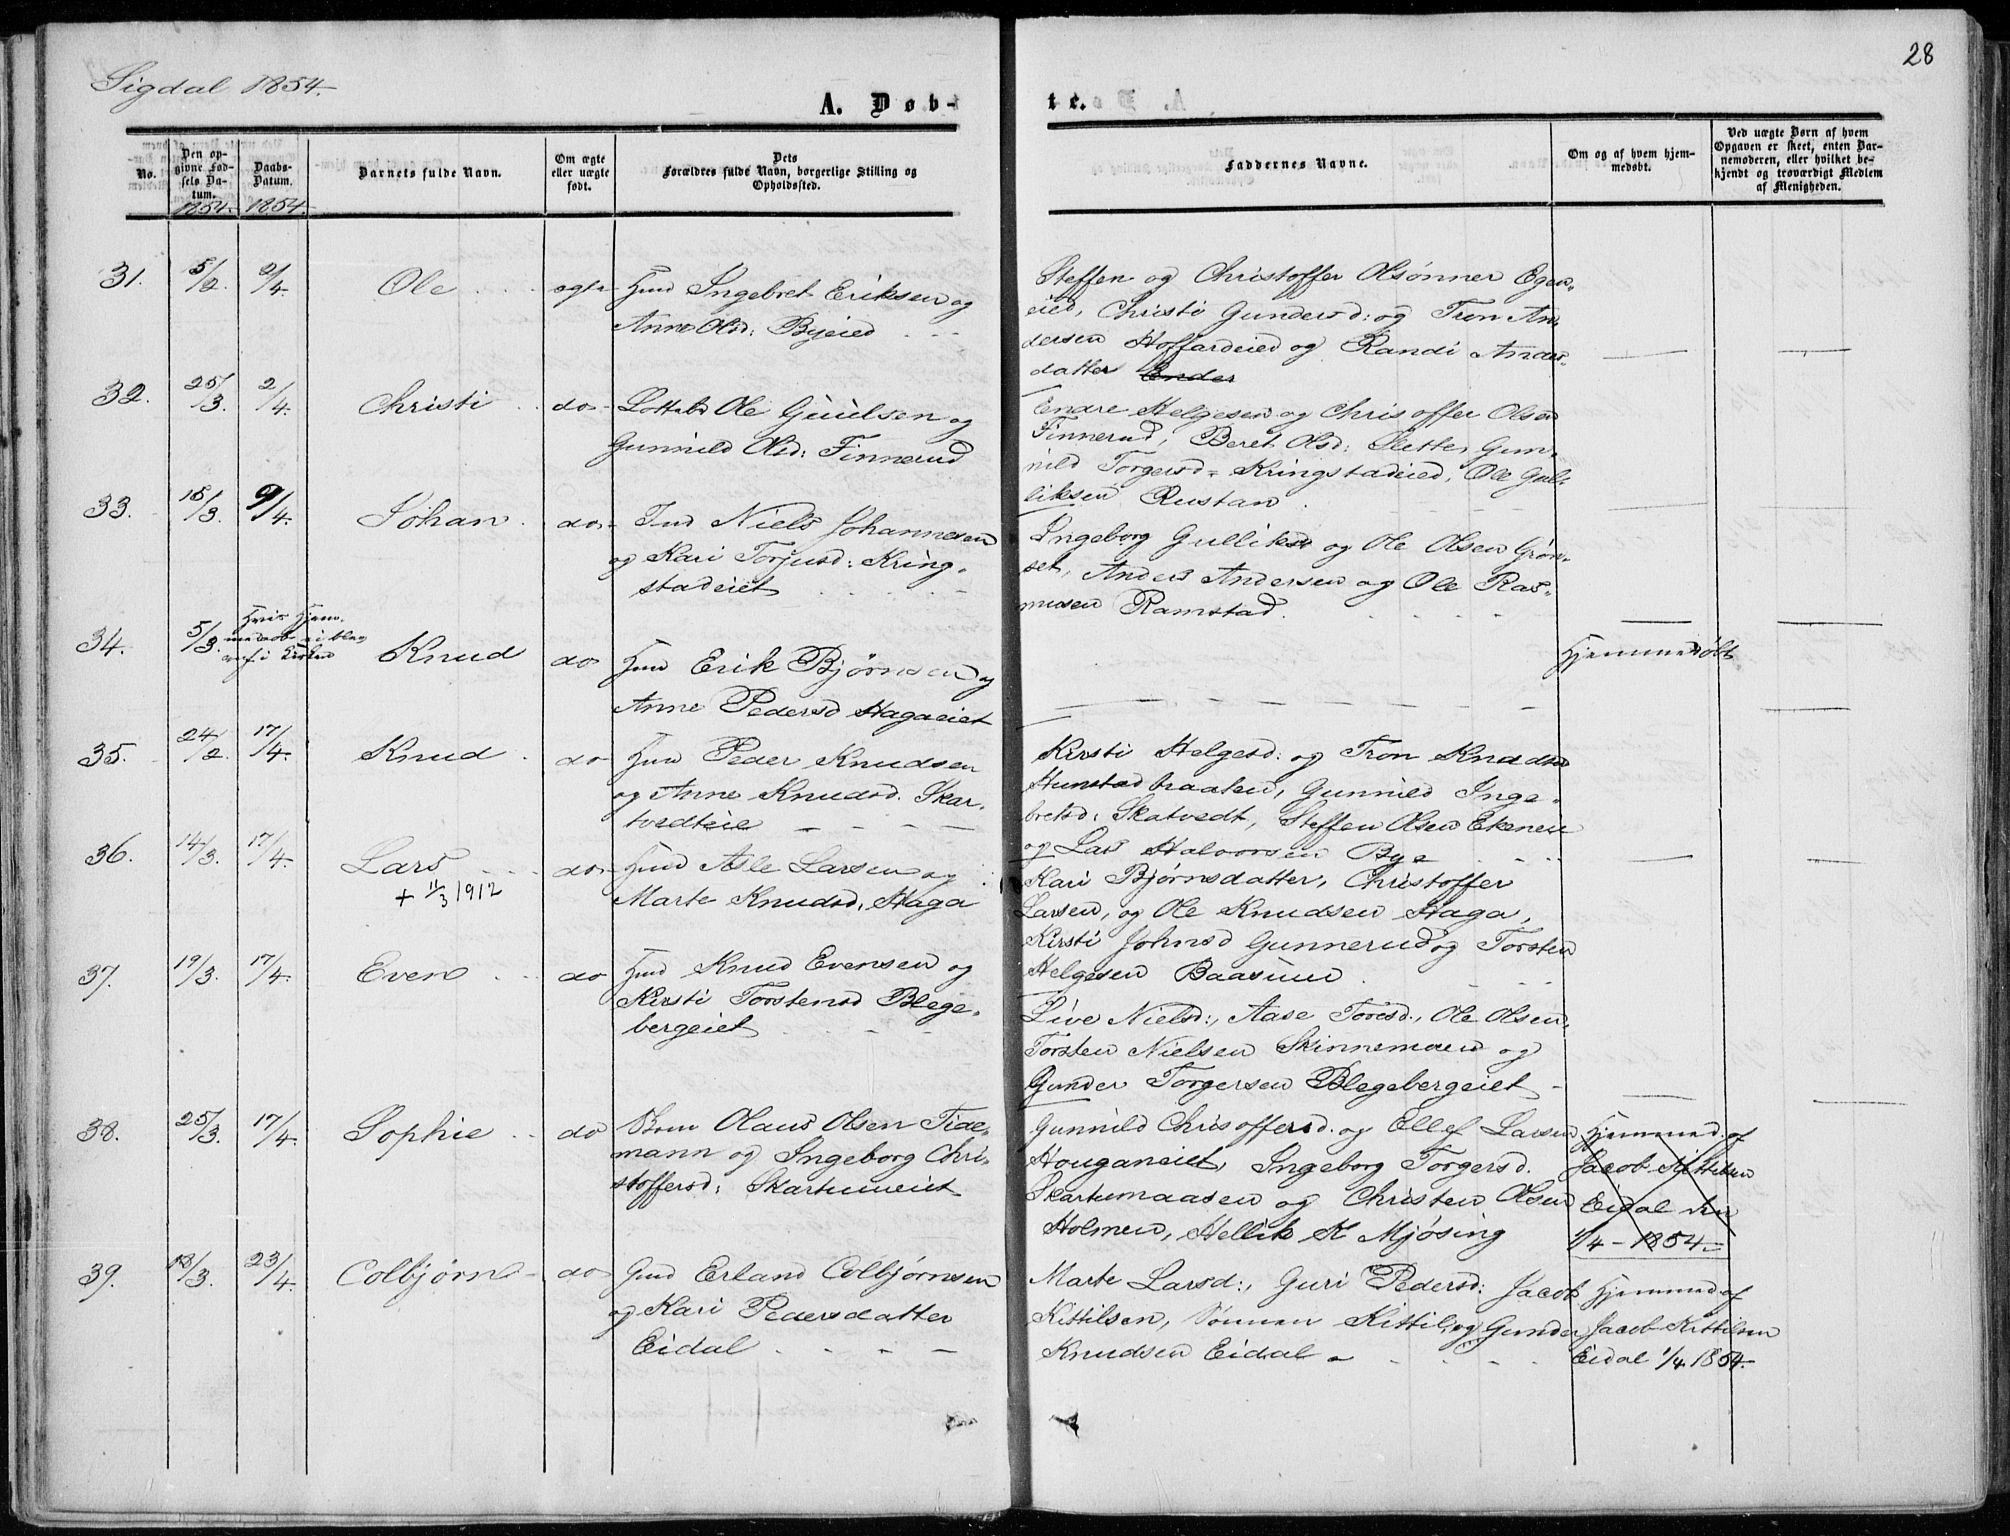 28
Sigdal 1854.
A. Døb-
te.
No.
Den op-
givne Fød-
sels Da-
tum.
1854.
Daabs-
Datum.
1854.
Barnets fulde Navn.
Om ægte
eller uægte
født.
Dets
Forældres fulde Navn, borgerlige Stilling og
Opholdssted.
Faddernes Navne.
Om og af hvem hjem-
medøbt.
Ved uægte Børn af hvem
Opgaven er skeet, enten Bar-
nemoderen, eller hvilket be-
kjendt og troværdigt Medlem
af Menigheden.
31. 5/2. 2/4. Ole ægte
Ingebret Eriksen og
Anne Olsd: Byeied
Steffen og Christoffer Olsønner Egen-
eied, Christi Gundersd: og Tron An-
dersen Hoffardeied og Randi Anders-
datter Ender
32. 25/3. 2/4. Christi do-
Ole Guulsen og
Gunnild Olsd: Finnerud
Endre Helgesen og Chrisoffer Olsen
Finnerud, Beret Olsd: Slette, Gun-
nild Torgersd- Kringstadeied, Ole Gul-
liksen Rustan.
33. 15/3. 9/4. Johan do-
Ind Niels Johannesen
og Kari Torjusd: Kring-
stadeiet
Ingeborg Golliksd og Ole Olsen Grøn-
set, Anders Andersen og Ole Ras-
musen Ramstad.
34. 5/3. Hvis Hjem-
i Kirken
Knud do
Huus Erik Bjørnsen og
Anne Pedersd Hagaeiet
Hjemmedøbt
35. 24/2. 17/4. Knud do
Huus Peder Knudsen
og Anne Knudsd. Skar-
tvedteie
Kirsti Helgesd: og Tron Knudsen
Hunstadbraaten, Gunnild Inge-
bretsd: Skatvedt, Steffen Olsen Ekeneie
og Lars Halvorsen Bye
36. 14/3. 17/4. Lars do-
+ 11/3 1912
Huus Asle Larsen og
Marte Knudsd. Haga
Kari Bjørnsdatter, Christoffer
Larsen, og Ole Knudsen Haga,
Kirsti Johnsd Gunnerud og Torsten
Helgesen Baasum
37. 19/3. 17/4. Even do
Huus Knud Evensen og
Kirsti Torstensd Blege-
bergeiet
Live Nielsd:, Aase Toresd., Ole Olsen,
Torsten Nielsen Skinnemoen og
Gunder Torgersen Blegebergeiet
38. 25/3. 17/4. Sophie do
Skom Olaus Olsen Tide-
mann og Ingeborg Chri-
stoffersd: Skartumeiet
Gunnild Chrisoffersd. og Ellef Larsen
Houganeiet, Ingeborg Torgersd.
Skartumaasen og Christen Olsen
Holmen, Hellik K Mjøsing
Hjemmed. af
Jacob Kittilsen
Eidal den
1/4 - 1854.
39. 18/3. 23/4. Colbjørn do
Gmd Erland Colbjørnsen
og Kari Pedersdatter
Eidal
Marte Larsd:, Guri Pedersd: Jacob
Kittilsen, Sønnen Kittil, og Gunder
Knudsen Eidal
Hjemmed af
Jacob Kittilsen
Eidal 1/4 1854.